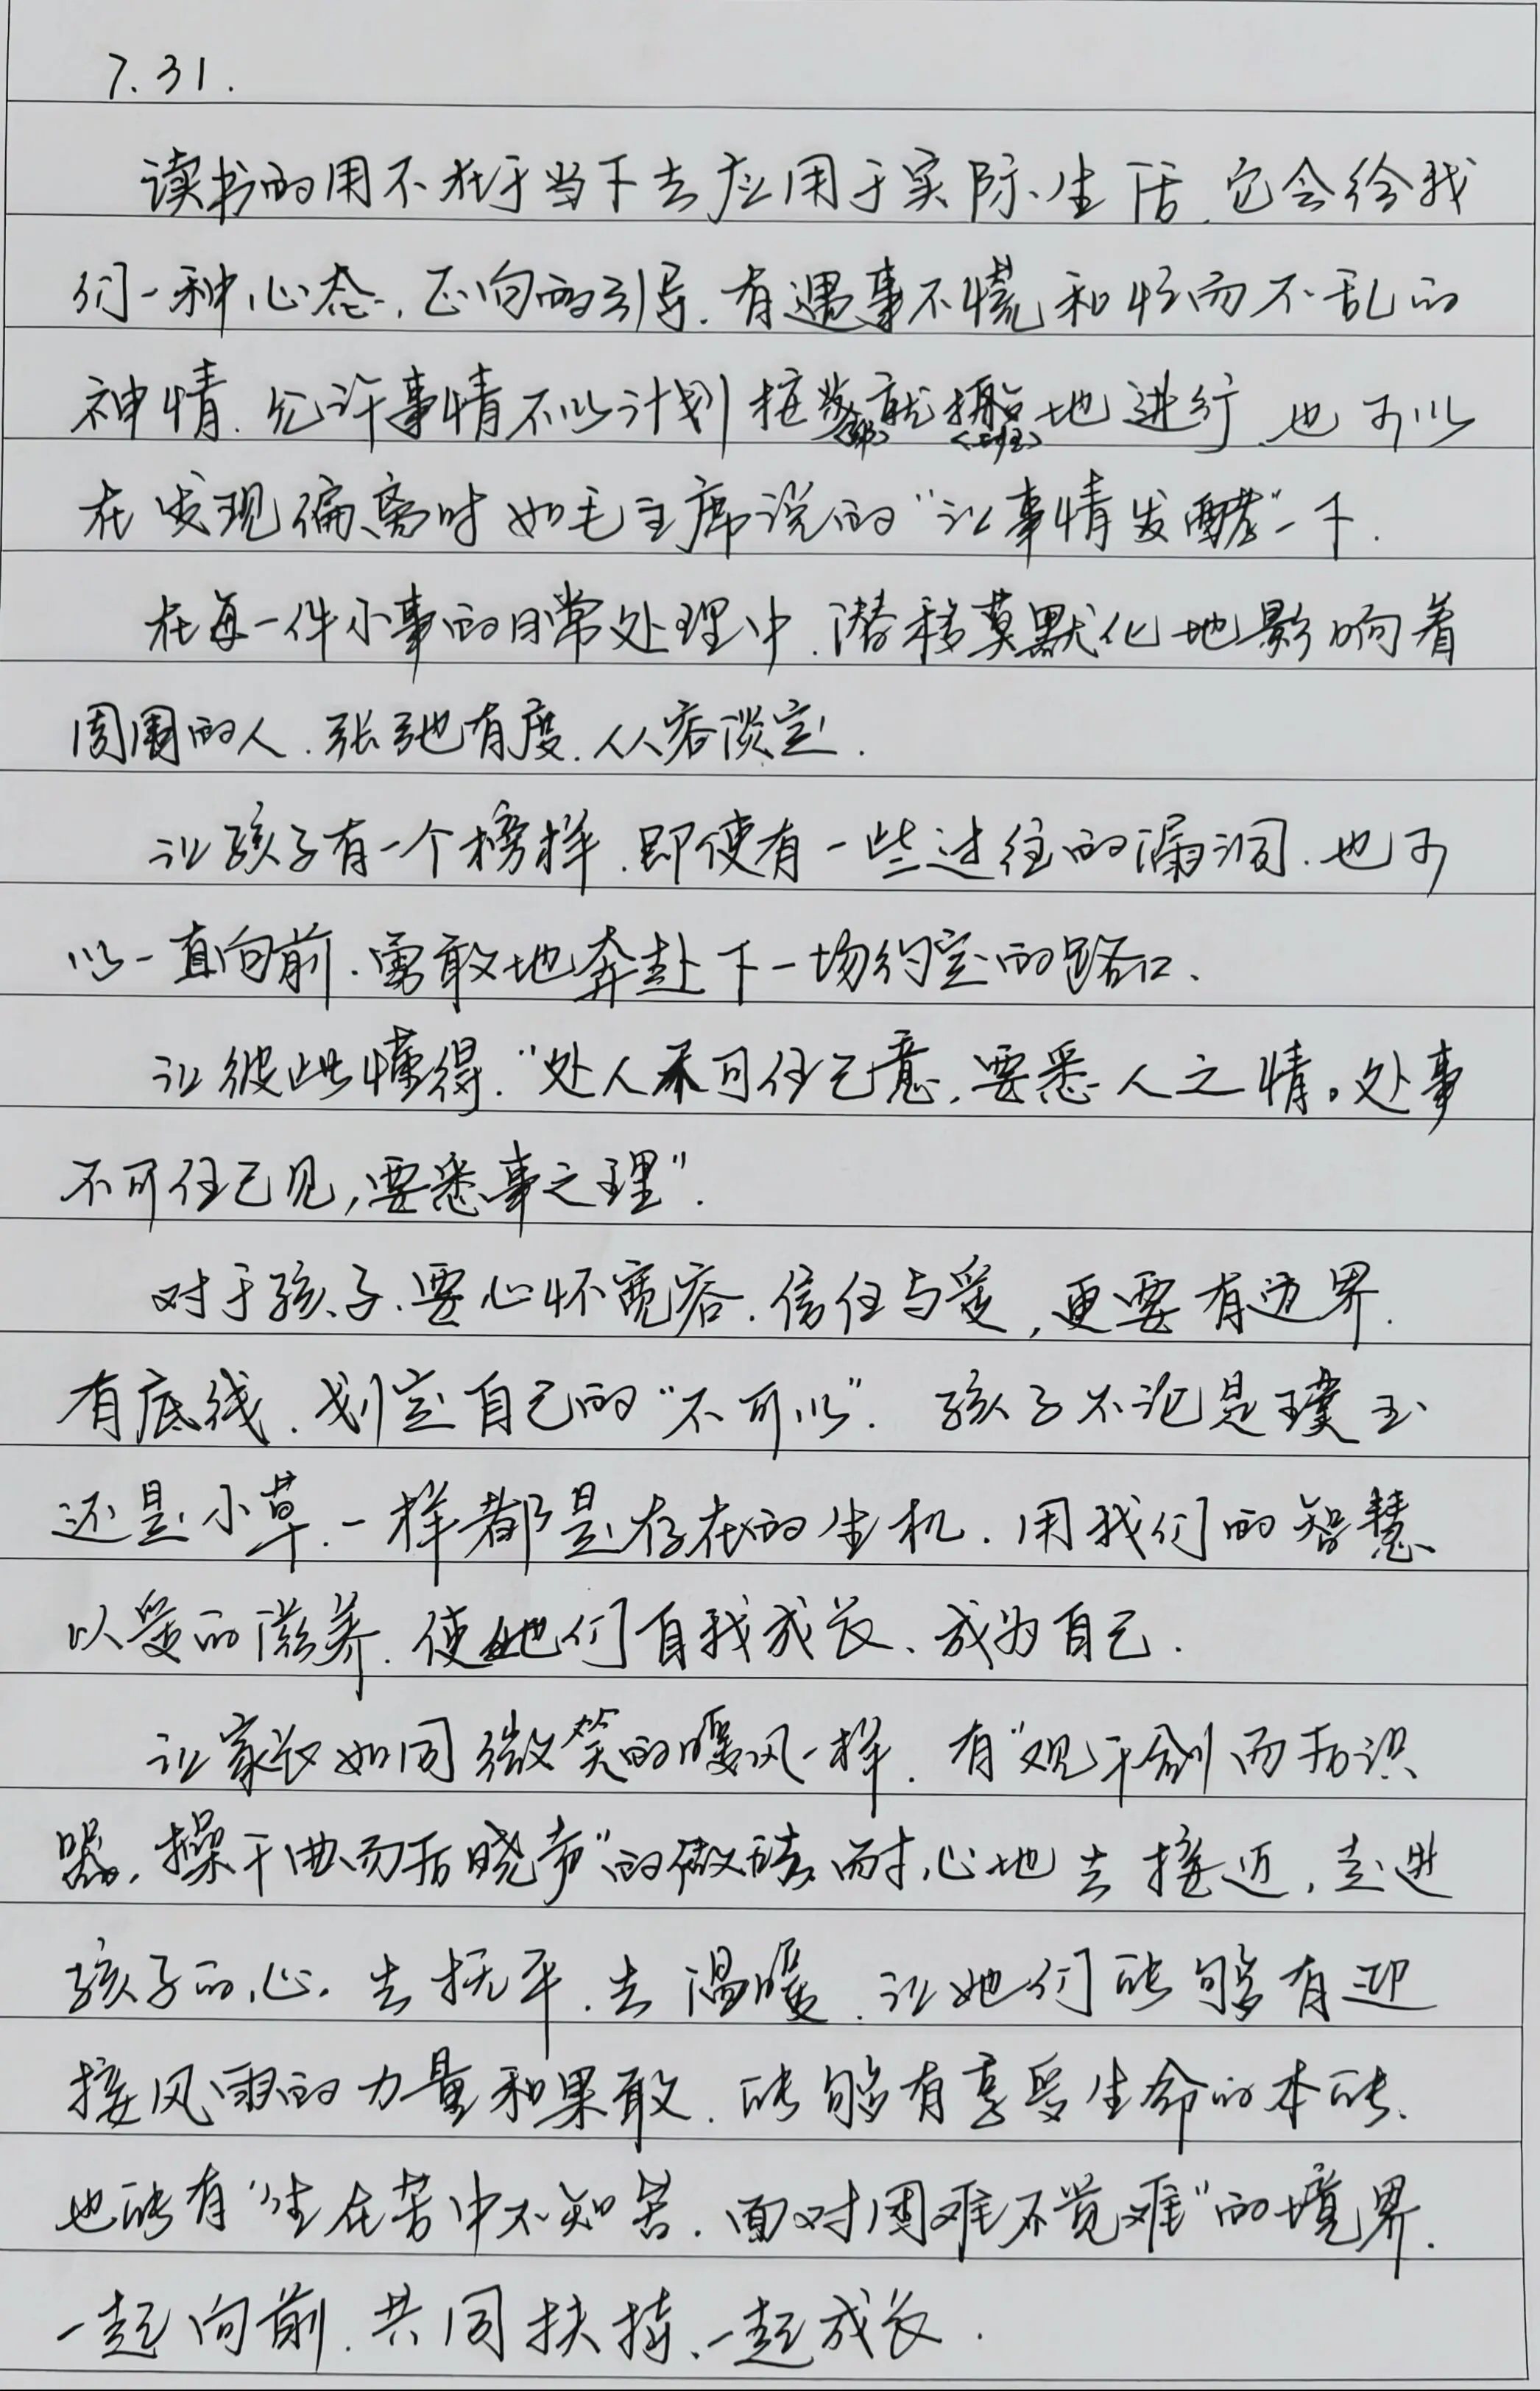 7.31.
读书的用不在于当下去应用于实际生活.它会给我
们一种心态.正向的引导.有遇事不慌和忙而不乱的
神情.允许事情不以计划按地进行.也可以
在发现偏离时如毛主席说的“让事情发酵”一下.
在每一件小事的日常处理中.潜移莫默化地影响着
周围的人.张弛有度.从容淡定.
让孩子有一个榜样.即使有一些过往的漏洞.也可
以一直向前.勇敢地奔赴下一场约定的路口.
让彼此懂得.“处人不可任己意,要悉人之情。处事
不可任己见,要悉事之理”.
对于孩子.要心怀宽容.信任与爱,更要有边界.
有底线.划定自己的“不可以”. 孩子不论是璞玉
还是小草.一样都是存在的生机.用我们的智慧
以爱的滋养.使她们自我成长、成为自己.
让家长如同微笑的暖风一样.有“观千剑而后识
器,操千曲而后晓声”的傲骄.耐心地去接近,走进
孩子的心.去抚平.去温暖.让她们能够有迎
接风雨的力量和果敢.能够有享受生命的本能.
也能有“生在苦中不知苦.面对困难不觉难”的境界.
一起向前.共同扶持、一起成长.